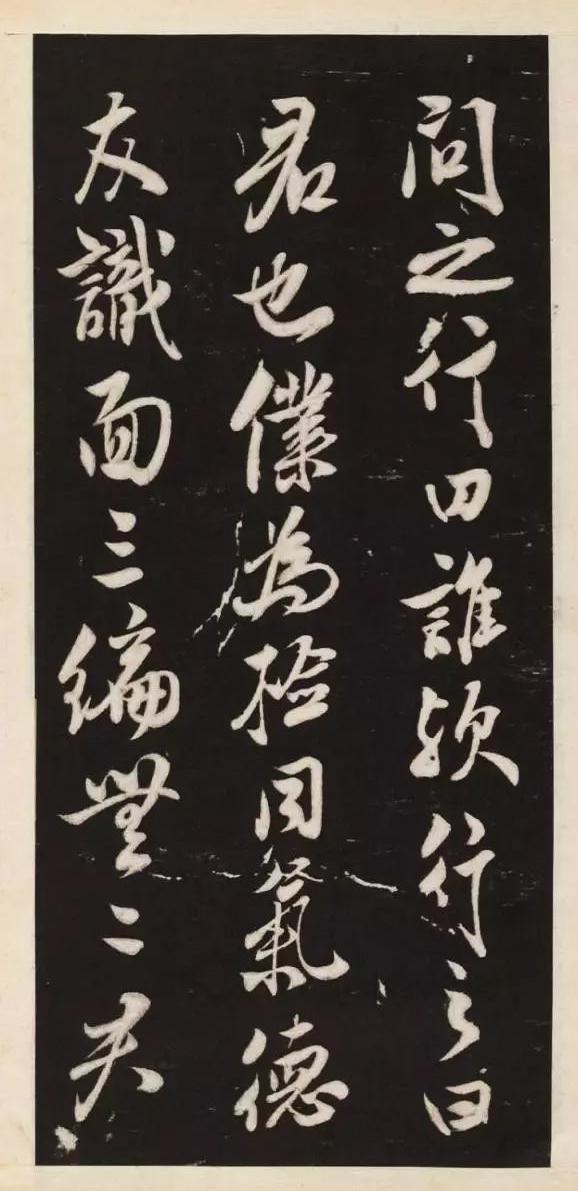 問之行曰誰欤行之曰
君也僕為捡同氣德
友識面三編無二夫